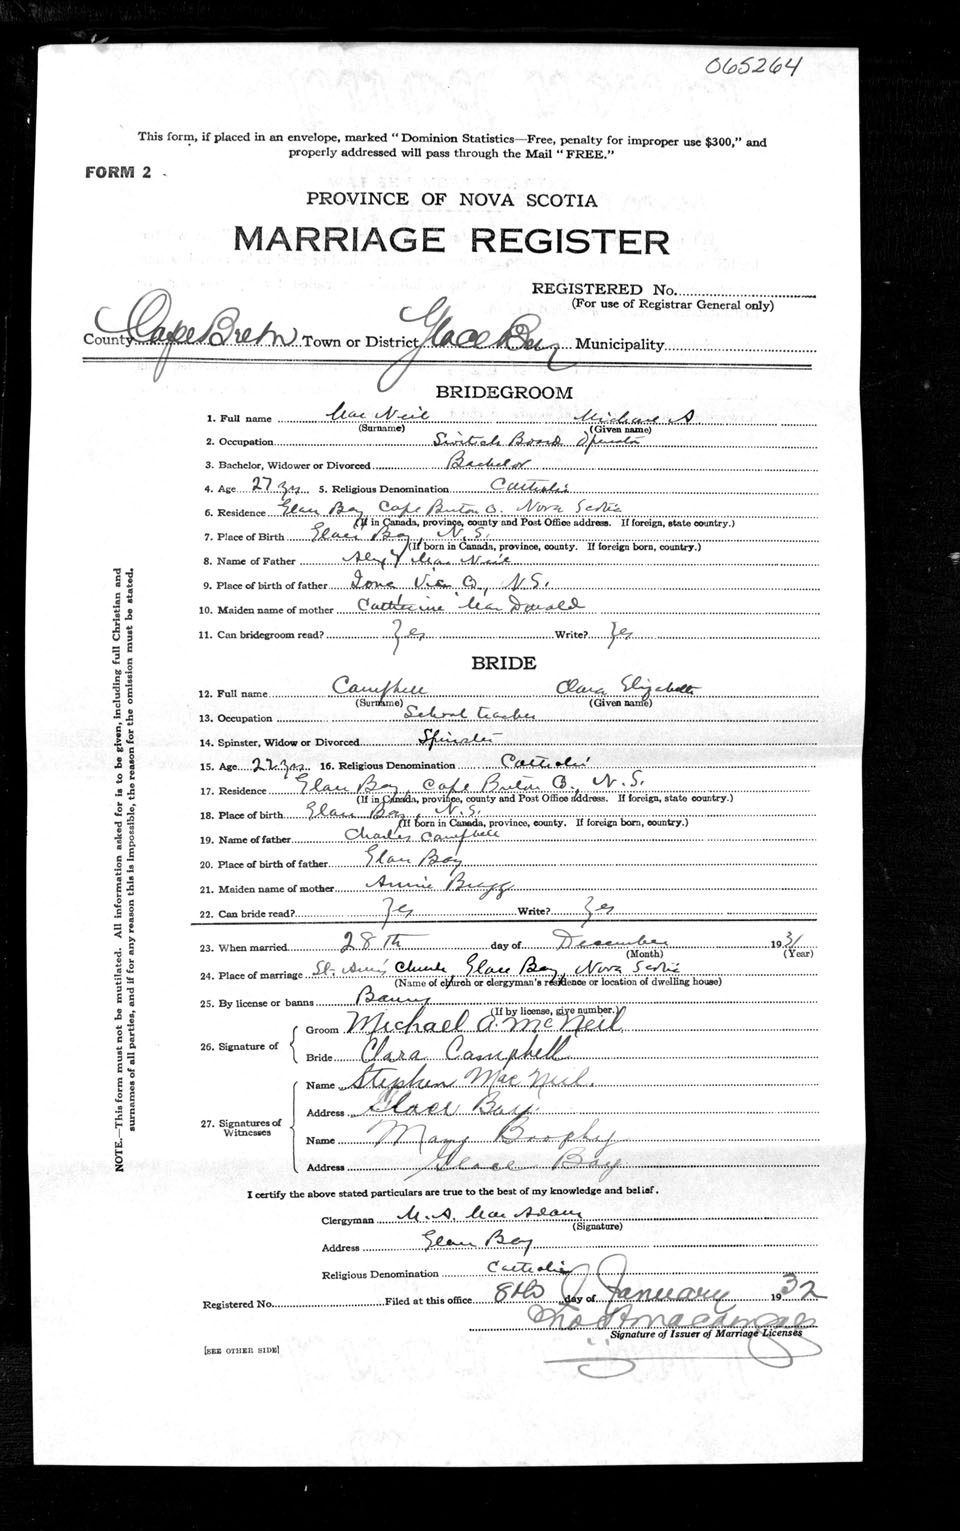 065264
This form, if placed in an envelope, marked "Dominion Statistics—Free, penalty for improper use $300," and
properly addressed will pass through the Mail "FREE."
FORM 2
PROVINCE OF NOVA SCOTIA
MARRIAGE REGISTER
REGISTERED No.
(For use of Registrar General only)
County Cape Breton Town or District Glace Bay Municipality
BRIDEGROOM
1. Full name Mac Neil Michael A.
(Surname) (Given name)
2. Occupation Switch Board Operator
3. Bachelor, Widower or Divorced Bachelor
4. Age 27 yrs 5. Religious Denomination Catholic
6. Residence Glace Bay Cape Breton Co. Nova Scotia
(If in Canada, province, county and Post Office address. If foreign, state country.)
7. Place of Birth Glace Bay, N.S.
(If born in Canada, province, county. If foreign born, country.)
8. Name of Father Alex Mac Neil
9. Place of birth of father Iona Vic Co, N.S.
10. Maiden name of mother Catherine Mac Donald
11. Can bridegroom read? Yes Write? Yes
BRIDE
12. Full name Campbell Clara Elizabeth
(Surname) (Given name)
13. Occupation School teacher
14. Spinster, Widow or Divorced Spinster
15. Age 22 yrs 16. Religious Denomination Catholic
17. Residence Glace Bay, Cape Breton Co., N.S.
(If in Canada, province, county and Post Office address. If foreign, state country.)
18. Place of birth Glace Bay, N.S.
(If born in Canada, province, county. If foreign born, country.)
19. Name of father Charles Campbell
20. Place of birth of father Glace Bay
21. Maiden name of mother Annie Bragg
22. Can bride read? Yes Write? Yes
23. When married 28th day of December 1931
(Month) (Year)
24. Place of marriage St. Ann's Church, Glace Bay, Nova Scotia
(Name of church or clergyman's residence or location of dwelling house)
25. By license or banns Banns
(If by license, give number.)
26. Signature of Groom Michael A. McNeil
Bride Clara Campbell
27. Signatures of Witnesses Name Stephen MacNeil.
Address Glace Bay.
Name Mary Brophy
Address Glace Bay
I certify the above stated particulars are true to the best of my knowledge and belief.
Clergyman M. A. Mac Adam
(Signature)
Address Glace Bay
Religious Denomination Catholic
Registered No. Filed at this office 8th day of January 1932
Signature of Issuer of Marriage Licenses
[SEE OTHER SIDE]
NOTE.—This form must not be mutilated. All information asked for is to be given, including full Christian and
surnames of all parties, and if for any reason this is impossible, the reason for the omission must be stated.